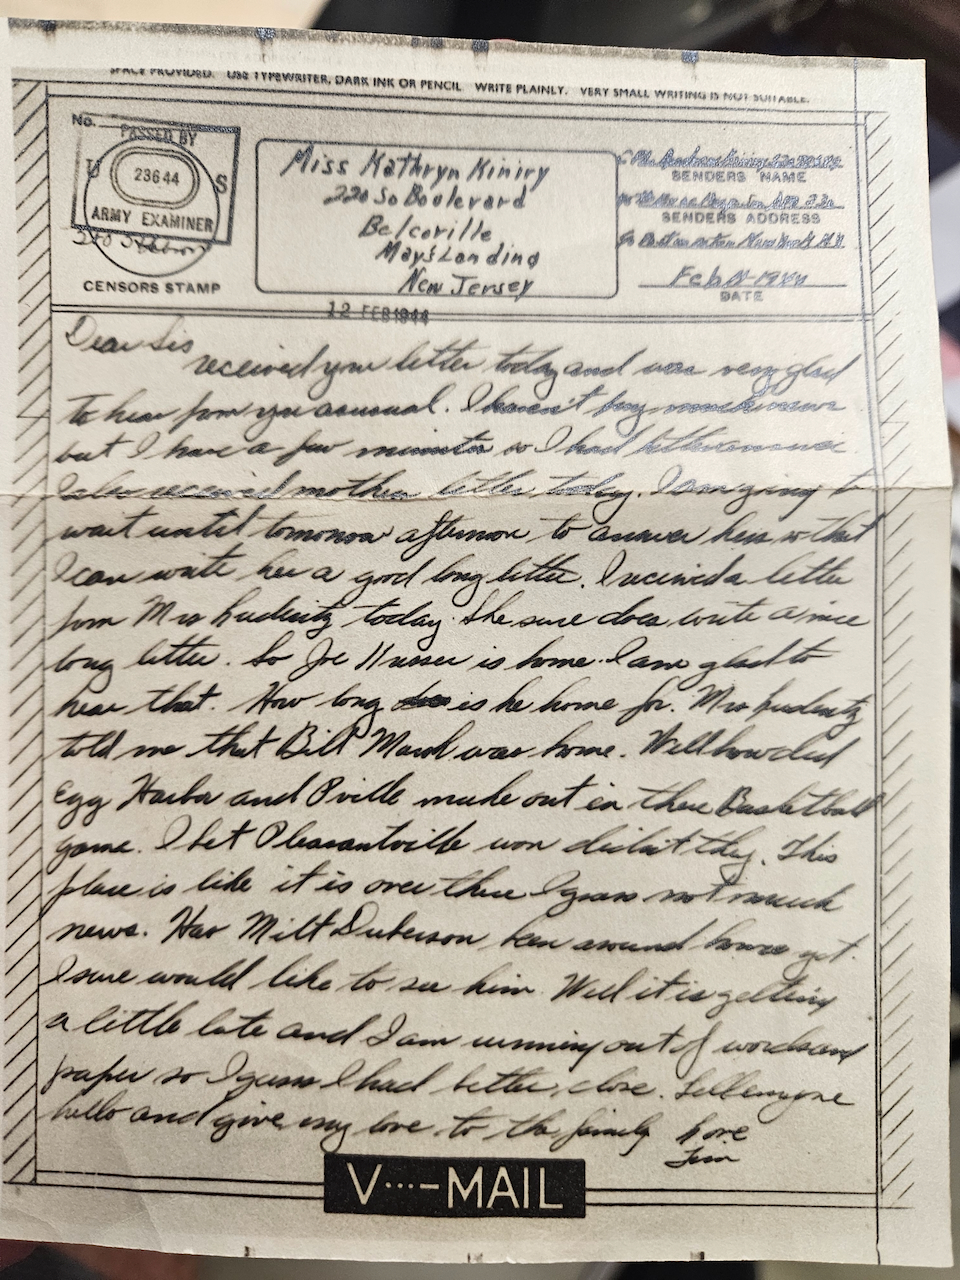 SPACE PROVIDED. USE TYPEWRITER, DARK INK OR PENCIL. WRITE PLAINLY. VERY SMALL WRITING IS NOT SUITABLE.
No.
PASSED BY
U S
23644
ARMY EXAMINER
CENSORS STAMP
Miss Kathryn Kiniry
220 So Boulevard
Belcoville
Mays Landing
New Jersey
SENDERS NAME
SENDERS ADDRESS
Postmaster New York N.Y.
Feb 11-1944
DATE
12 FEB 1944
Dear Sis
received your letter today and was very glad
to hear from you as usual. I haven't much news
but I have a few minutes so I had
I also received mother letter today. I am going to
wait until tomorrow afternoon to answer hers so that
I can write her a good long letter. I received a letter
from Mrs today. She sure does write a nice
long letter. So Joe is home. I am glad to
hear that. How long is he home for. Mrs
told me that Bill was home. Well how did
Egg Harbor and Pville make out in there Basketball
game. I bet Pleasantville won didn't they. This
place is like it is over there I guess not much
news. Has Milt been around home yet.
I sure would like to see him. Well it is getting
a little late and I am running out of words and
paper so I guess I had better close. Tell everyone
hello and give my love to the family Love
Jim
V···–MAIL